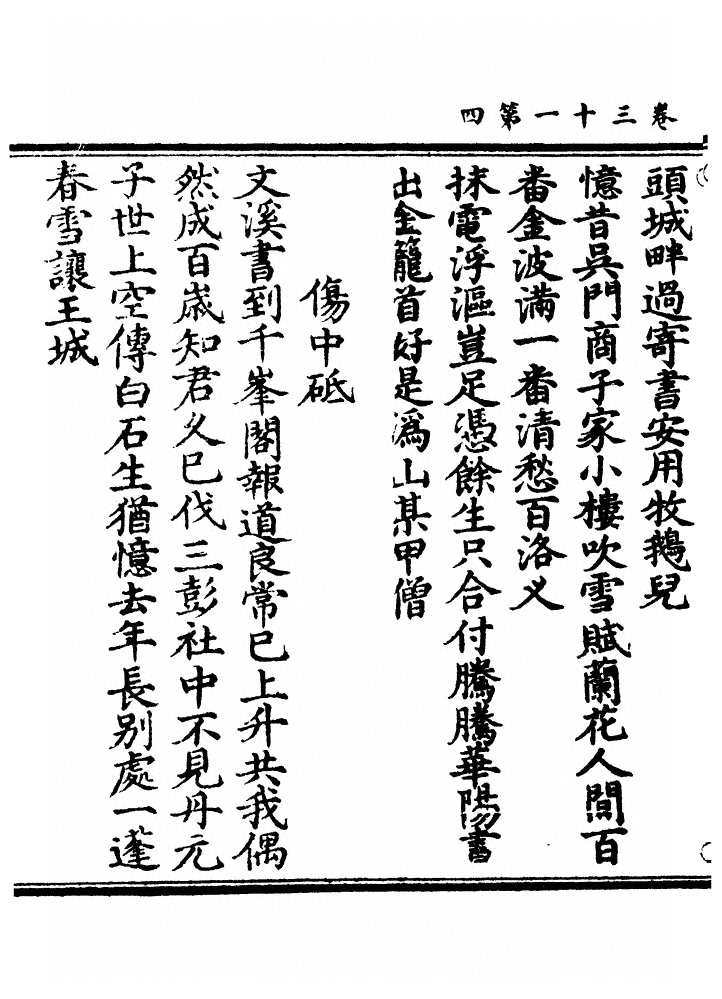 卷三十一第四
頭城畔過寄書安用牧鵝兒
憶昔吳門商子家小樓吹雪賦蘭花人間百
番金波滿一番清愁百洛义
抹電浮漚豈足憑餘生只合付騰騰華陽書
出金籠首好是溈山某甲僧
傷中砥
文溪書到千峯閣報道良常巳上升共我偶
然成百歲知君久巳伐三彭社中不見丹元
子世上空傳白石生猶憶去年長別處一蓬
春雪讓王城